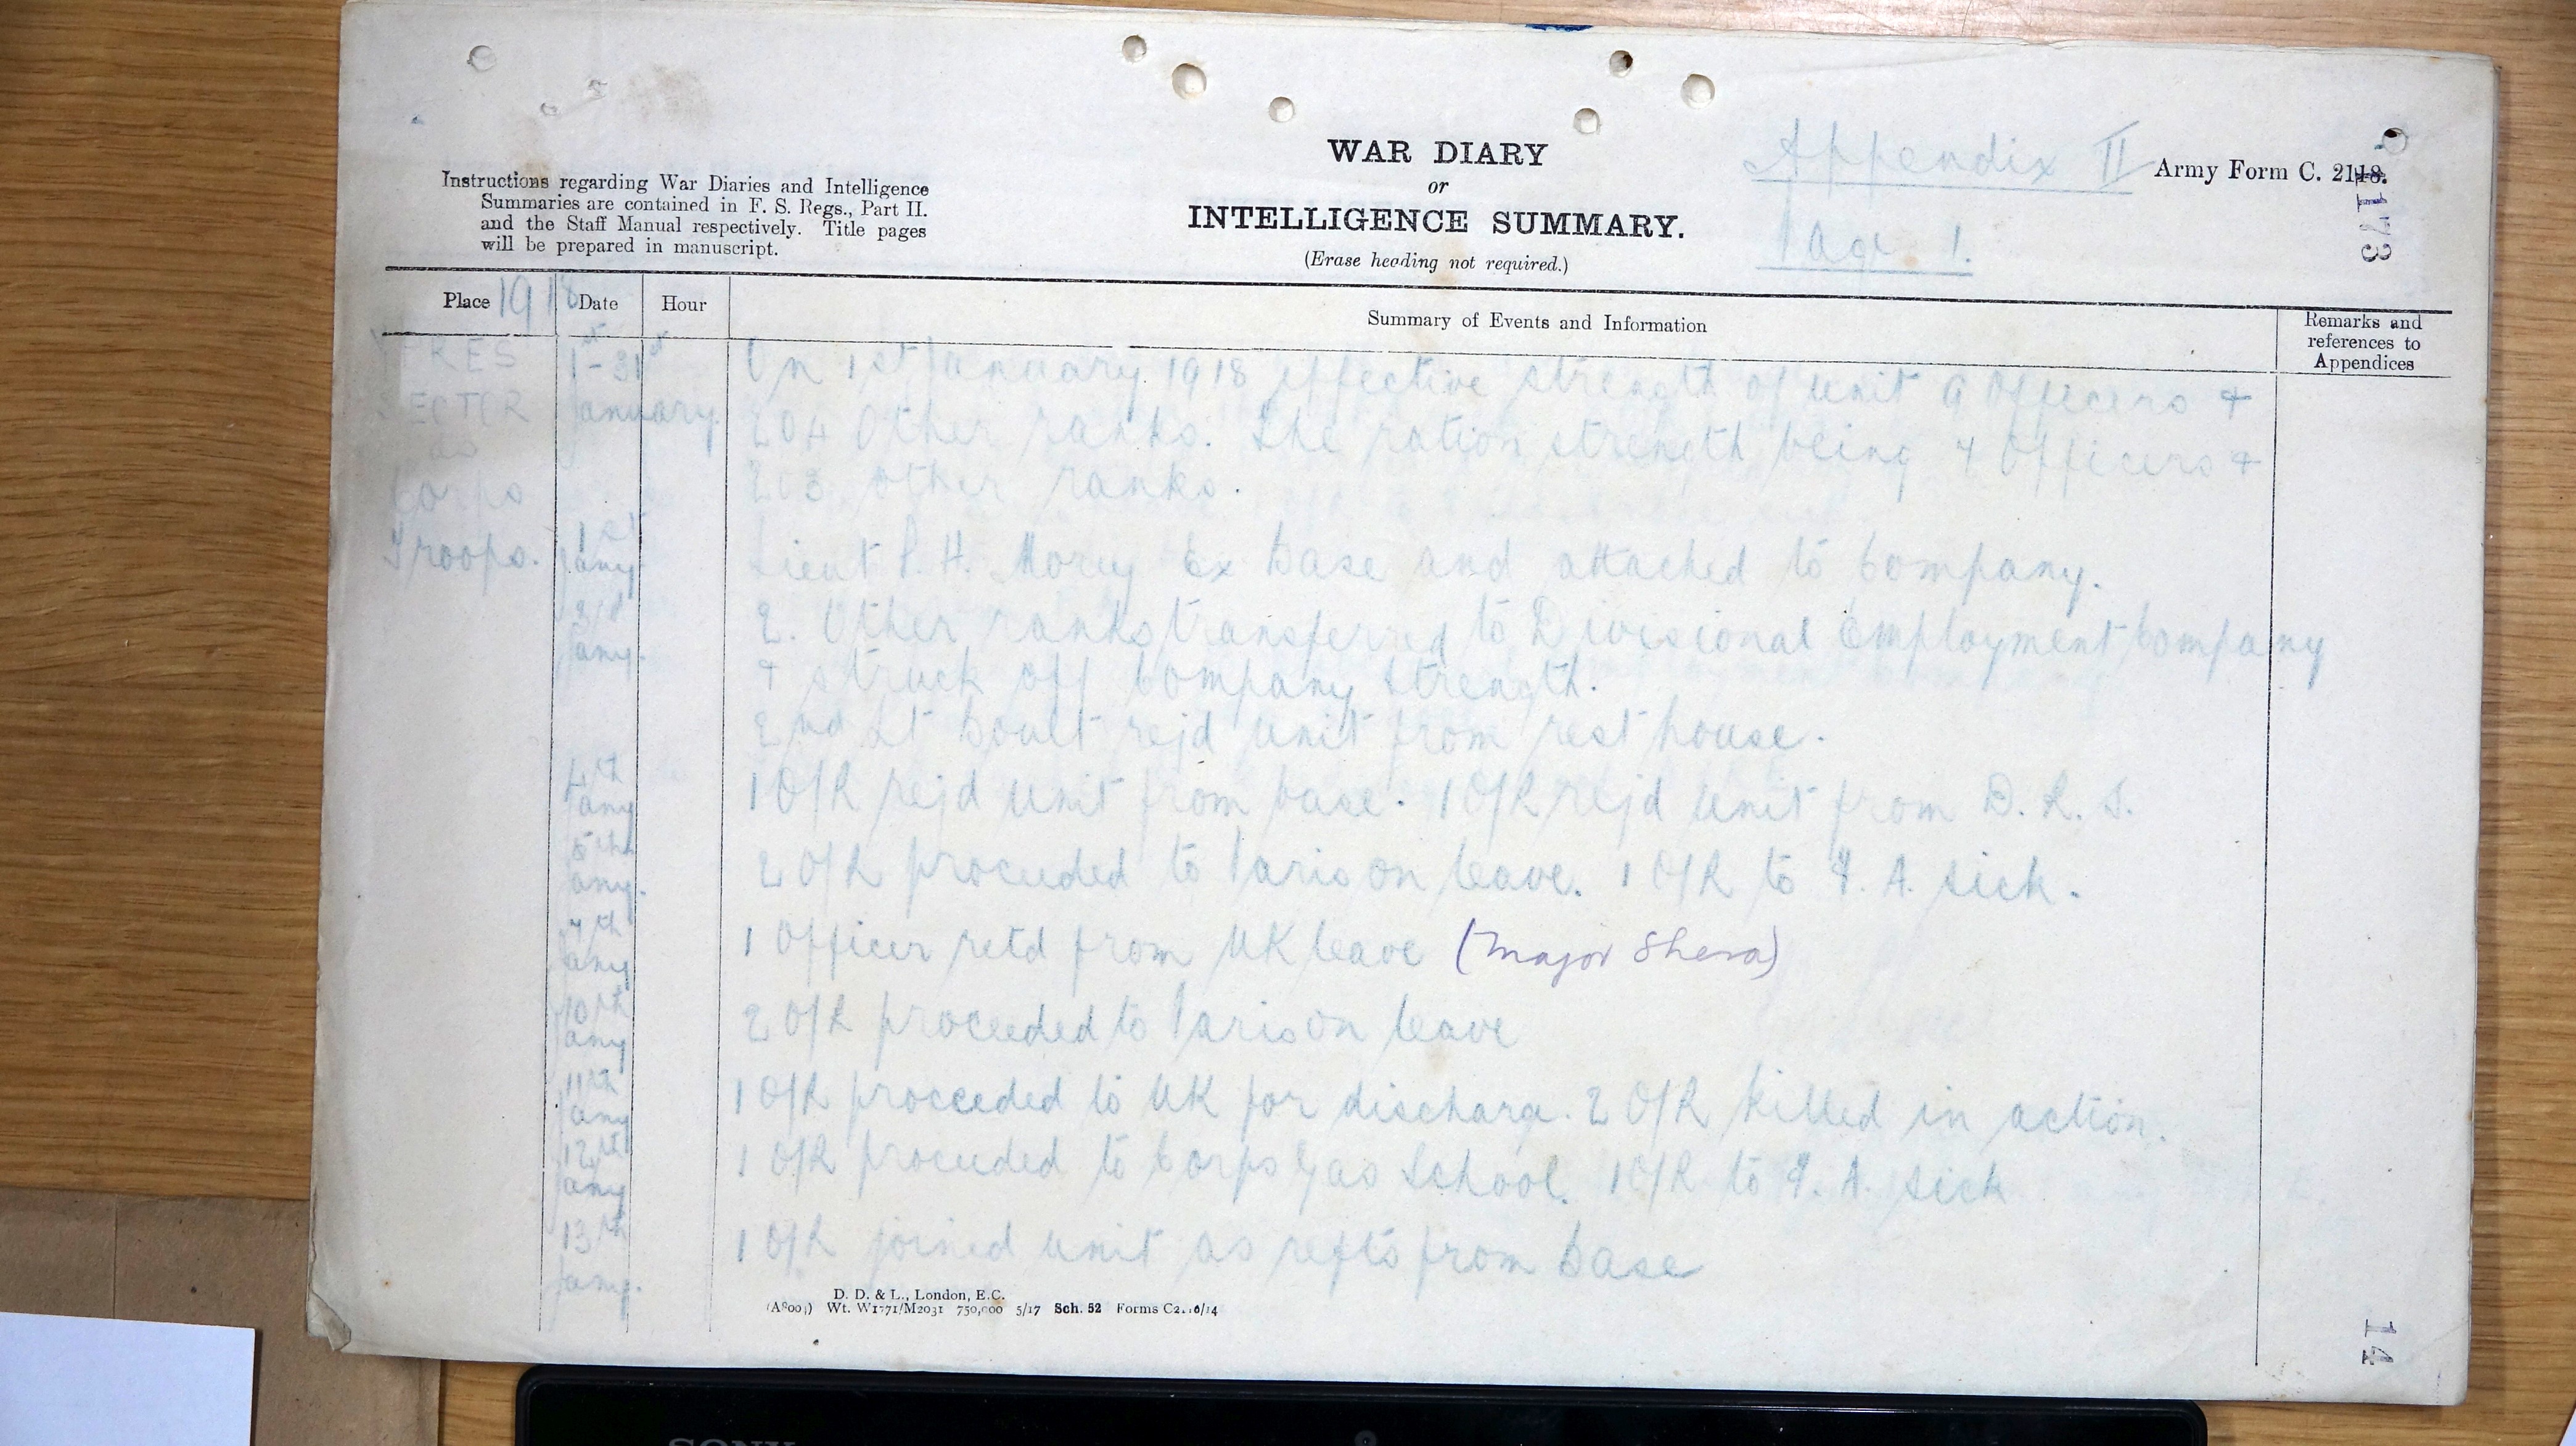 WAR DIARY
or
INTELLIGENCE SUMMARY.
(Erase heading not required.)
Appendix II
Page 1.
Army Form C. 2118.
1173
Instructions regarding War Diaries and Intelligence
Summaries are contained in F. S. Regs., Part II.
and the Staff Manual respectively. Title pages
will be prepared in manuscript.
Place 1918 Date Hour
Summary of Events and Information
Remarks and
references to
Appendices
YPRES
SECTOR
as
Corps
Troops.
1st - 31st
January
On 1st January 1918 effective strength of unit 9 Officers +
204 Other ranks. The ration strength being 7 Officers +
203 other ranks.
1st
Jany
Lieut P. H. Ex base and attached to Company.
3rd
Jany.
2. Other ranks transferred to Divisional Employment Company
+ struck off Company strength.
2nd Lt Boult rejd unit from rest house.
4th
Jany
1 O/R rejd unit from base. 1 O/R rejd unit from D. R. S.
5th
Jany.
2 O/R proceeded to Paris on leave. 1 O/R to F. A. sick.
7th
Jany
1 Officer retd from UK leave (Major Shera)
10th
Jany
2 O/R proceeded to Paris on leave
11th
Jany
1 O/R proceeded to UK for discharg. 2 O/R killed in action.
12th
Jany
1 O/R proceeded to Corps Gas School. 1 O/R to F. A. sick
13th
Jany.
1 O/R joined unit as refts from base
D. D. & L., London, E.C.
Wt. W1771/M2031 750,000 5/17 Sch. 52 Forms
14
SONY